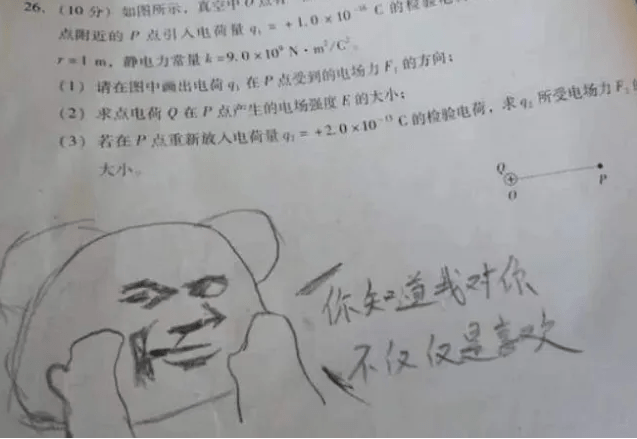 26. (10分) 如图所示,真空中O点有
点附近的P点引入电荷量q₁=+1.0×10 C的检验电
r=1 m, 静电力常量k=9.0×10⁹ N·m²/C²。
(1) 请在图中画出电荷q₁在P点受到的电场力F₁的方向;
(2) 求点电荷Q在P点产生的电场强度E的大小;
(3) 若在P点重新放入电荷量q₂=+2.0×10 C的检验电荷,求q₂所受电场力F₂的
大小。
Q
O
P
你知道我对你
不仅仅是喜欢